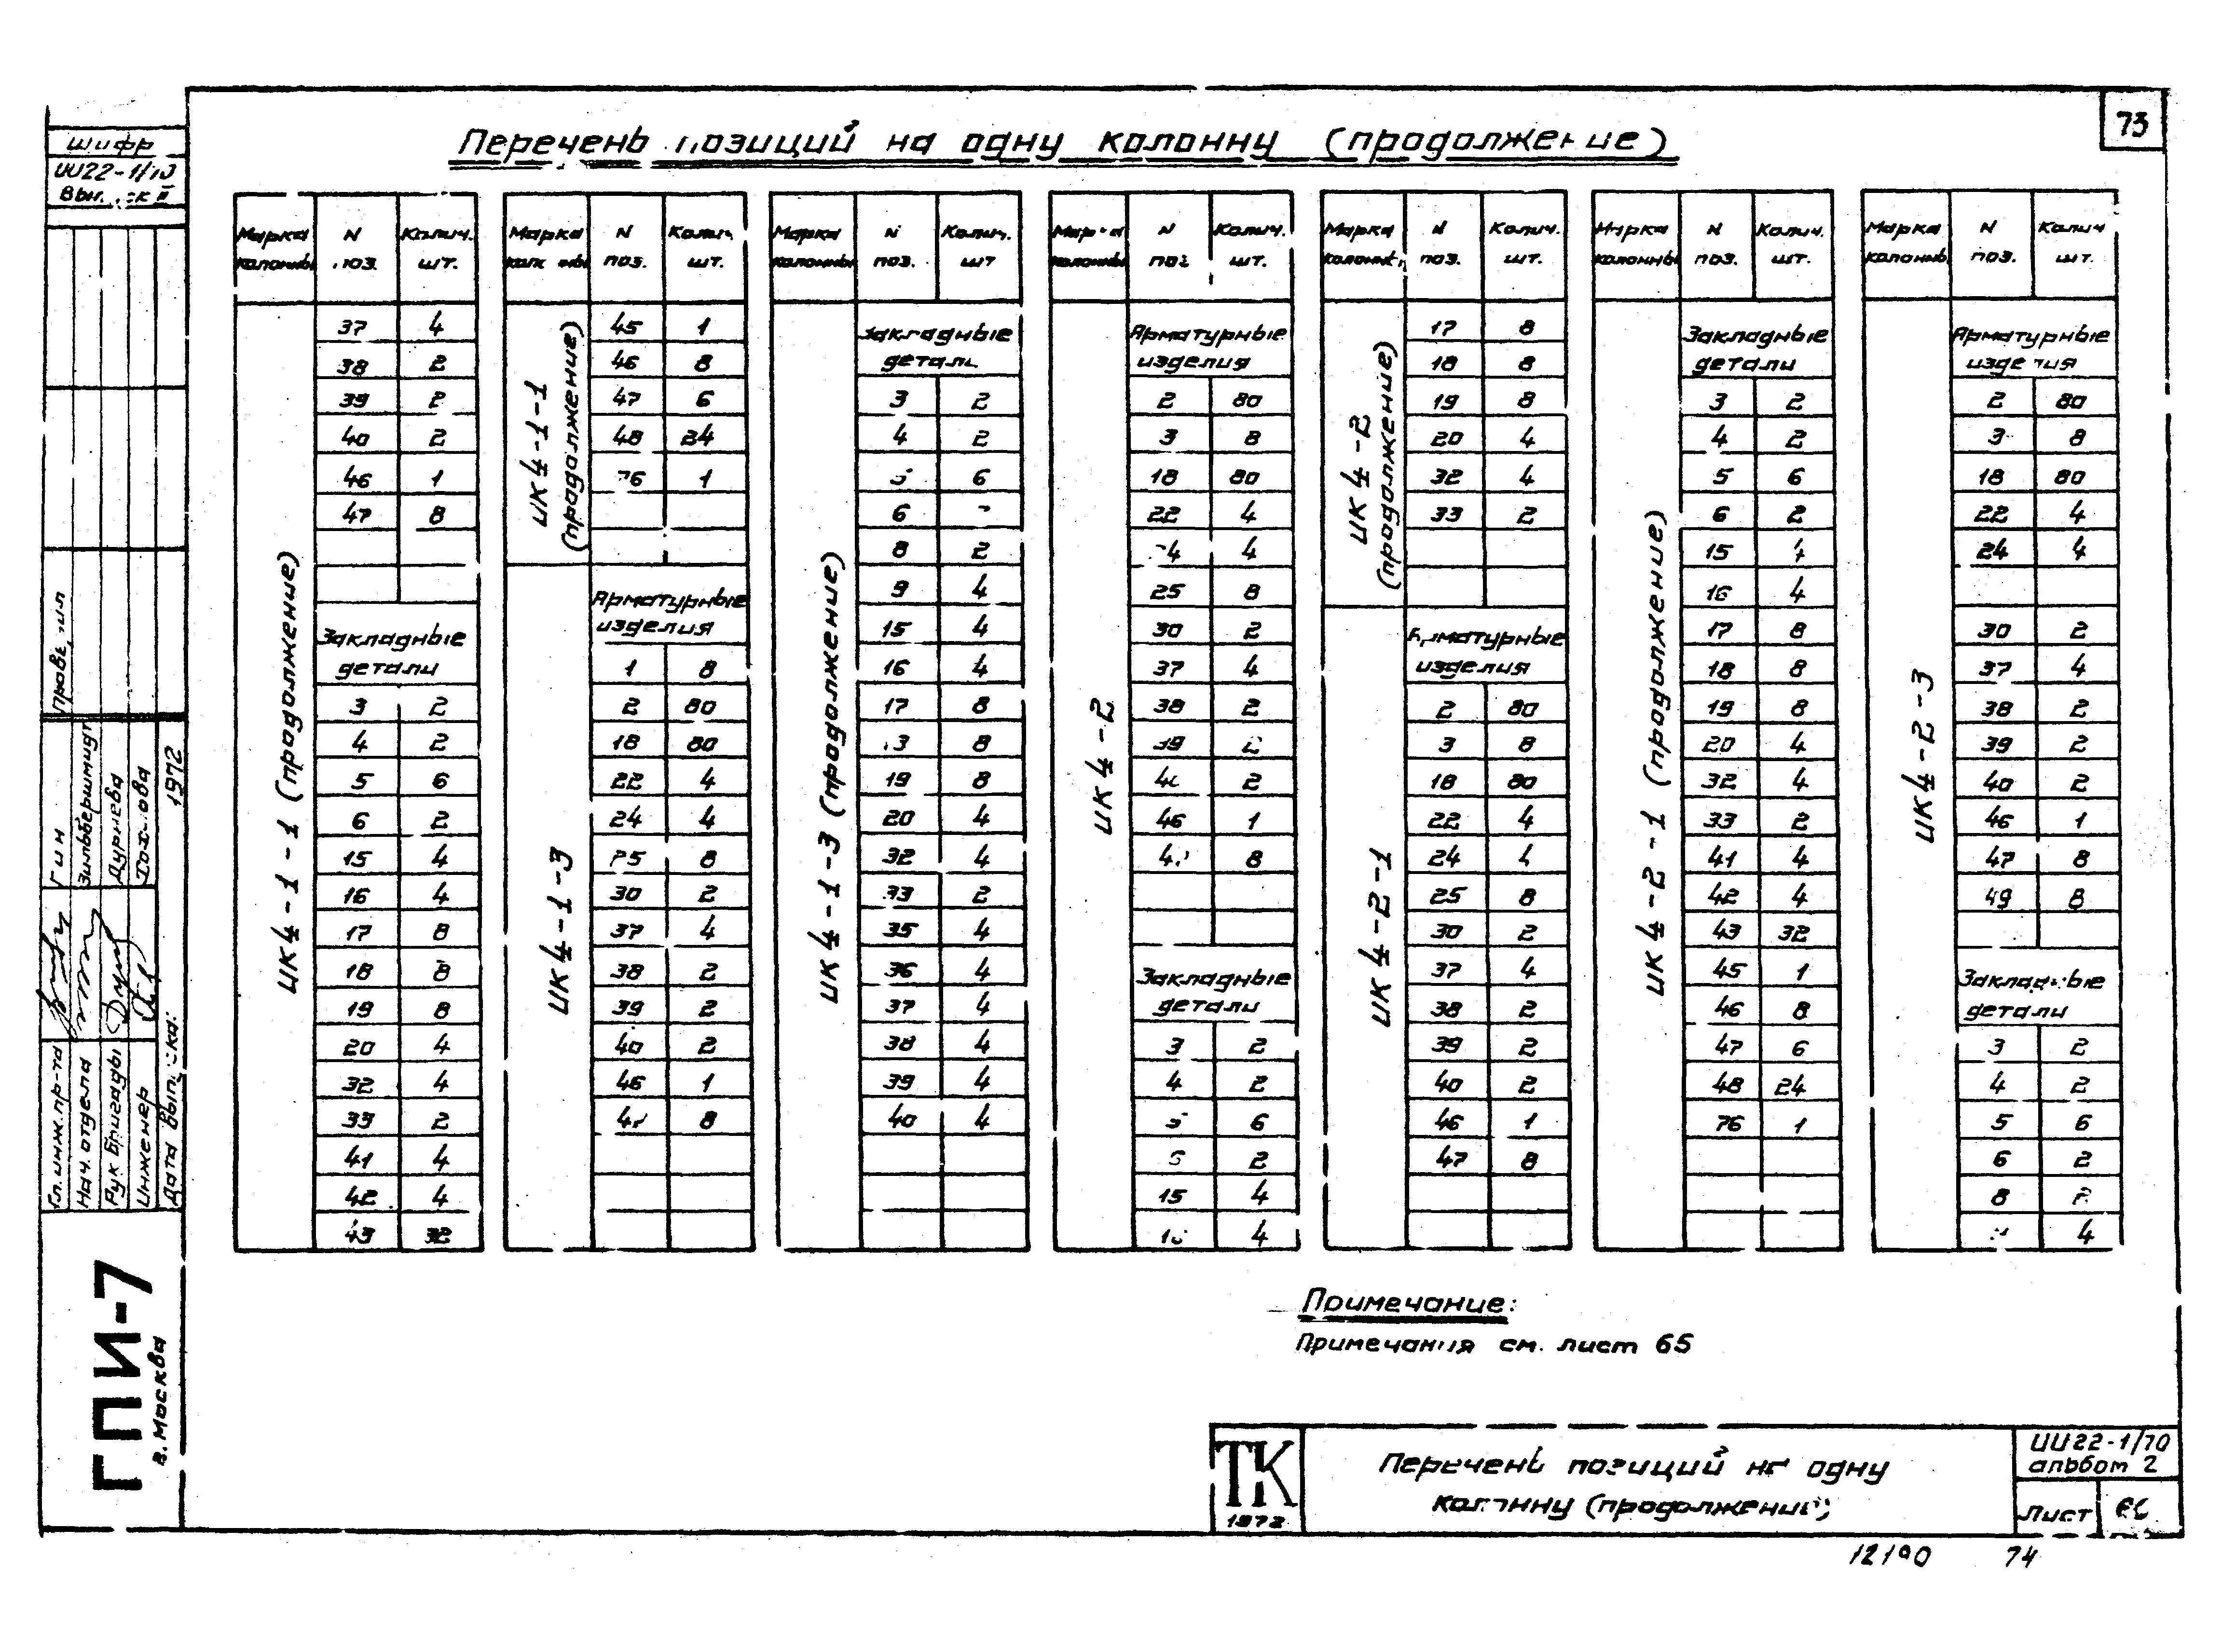 73
Перечень позиций на одну колонну (продолжение)
Шифр
ИИ22-1/70
Марка колонны N поз. Колич. шт.
ИК4-1-1 (продолжение)
37 4
38 2
39 2
40 2
46 1
47 8
Закладные
детали
3 2
4 2
5 6
6 2
15 4
16 4
17 8
18 8
19 8
20 4
32 4
33 2
41 4
42 4
43 32
Марка колонны N поз. Колич. шт.
ИК4-1-1
(продолжение)
45 1
46 8
47 6
48 24
76 1
ИК4-1-3
Арматурные
изделия
1 8
2 80
18 80
22 4
24 4
25 8
30 2
37 4
38 2
39 2
40 2
46 1
8
Марка колонны N поз. Колич. шт
ИК4-1-3 (продолжение)
Закладные
детали
3 2
4 2
5 6
6
8 2
9 4
15 4
16 4
17 8
8
19 8
20 4
32 4
33 2
35 4
36 4
37 4
38 4
39 4
40 4
Марка колонны N поз Колич. шт.
ИК4-2
Арматурные
изделия
2 80
3 8
18 80
22 4
4
25 8
30 2
37 4
38 2
39 2
40 2
46 1
8
Закладные
детали
3 2
4 2
5 6
6 2
15 4
4
Марка колонны N поз. Колич. шт.
ИК4-2
(продолжение)
17 8
18 8
19 8
20 4
32 4
33 2
ИК4-2-1
Арматурные
изделия
2 80
3 8
18 80
22 4
24 4
25 8
30 2
37 4
38 2
39 2
40 2
46 1
47 8
Марка колонны N поз. Колич. шт.
ИК4-2-1 (продолжение)
Закладные
детали
3 2
4 2
5 6
6 2
15 4
16 4
17 8
18 8
19 8
20 4
32 4
33 2
41 4
42 4
43 32
45 1
46 8
47 6
48 24
76 1
Марка колонны N поз. Колич шт.
ИК4-2-3
Арматурные
изделия
2 80
3 8
18 80
22 4
24 4
30 2
37 4
38 2
39 2
40 2
46 1
47 8
49 8
Закладные
детали
3 2
4 2
5 6
6 2
8 2
4
Примечание:
Примечания см. лист 65
Проверил
Гл.инж.пр-та Гин
Нач.отдела Зильбершмидт
Рук бригады Дурнева
Инженер
Дата выпуска: 1972
ГПИ-7
г. Москва
ТК
1972
Перечень позиций на одну
колонну (продолжение)
ИИ22-1/70
альбом 2
Лист
12190 74